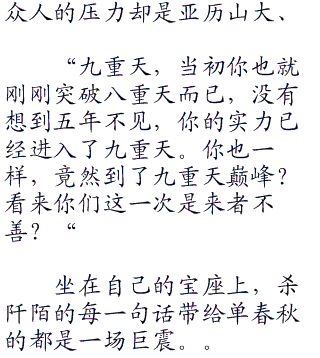 众人的压力却是亚历山大、
“九重天，当初你也就
刚刚突破八重天而已，没有
想到五年不见，你的实力已
经进入了九重天。你也一
样，竟然到了九重天巅峰？
看来你们这一次是来者不
善？“
坐在自己的宝座上，杀
阡陌的每一句话带给单春秋
的都是一场巨震。。